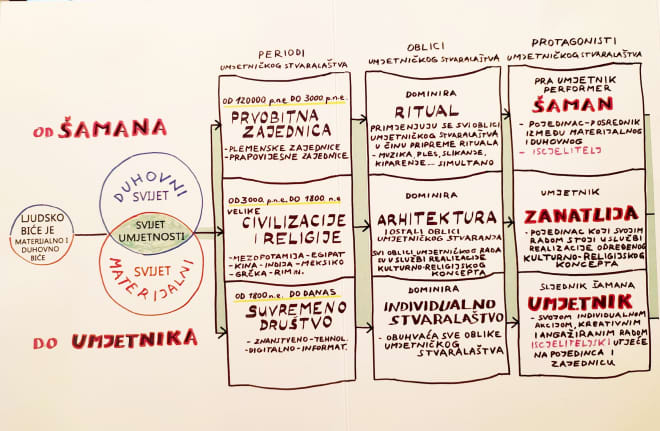 OD ŠAMANA
LJUDSKO
BIĆE JE
MATERIJALNO I
DUHOVNO
BIĆE
DUHOVNI
SVIJET
SVIJET
UMJETNOSTI
SVIJET
MATERIJALNI
DO UMJETNIKA
PERIODI
UMJETNIČKOG STVARALAŠTVA
OD 120000 p.n.e. DO 3000 p.n.e.
PRVOBITNA
ZAJEDNICA
- PLEMENSKE ZAJEDNICE
- PRAPOVIJESNE ZAJEDNICE
OD 3000. p.n.e. DO 1800 n.e
VELIKE
CIVILIZACIJE
I RELIGIJE
- MEZOPOTAMIJA - EGIPAT
- KINA - INDIJA - MEKSIKO
- GRČKA - RIM...
OD 1800 n.e. DO DANAS
SUVREMENO
DRUŠTVO
- ZNANSTVENO - TEHNOL.
- DIGITALNO - INFORMAT.
OBLICI
UMJETNIČKOG STVARALAŠTVA
DOMINIRA
RITUAL
PRIMJENJUJU SE SVI OBLICI
UMJETNIČKOG STVARALAŠTVA
U ČINU PRIPREME RITUALA
- MUZIKA, PLES, SLIKANJE,
KIPARENJE... SIMULTANO
DOMINIRA
ARHITEKTURA
I OSTALI OBLICI
UMJETNIČKOG STVARANJA
SVI OBLICI UMJETNIČKOG RADA
SU U SLUŽBI REALIZACIJE
KULTURNO-RELIGIJSKOG
KONCEPTA
DOMINIRA
INDIVIDUALNO
STVARALAŠTVO
- OBUHVAĆA SVE OBLIKE
UMJETNIČKOG
STVARALAŠTVA
PROTAGONISTI
UMJETNIČKOG STVARALAŠTVA
PRA UMJETNIK
PERFORMER
ŠAMAN
- POJEDINAC - POSREDNIK
IZMEĐU MATERIJALNOG
I DUHOVNOG
- ISCJELITELJ
UMJETNIK
ZANATLIJA
- POJEDINAC KOJI SVOJIM
RADOM STOJI U SLUŽBI
REALIZACIJE ODREĐENOG
KULTURNO-RELIGIJSKOG
KONCEPTA
SLJEDNIK ŠAMANA
UMJETNIK
- SVOJOM INDIVIDUALNOM
AKCIJOM, KREATIVNIM
I ANGAŽIRANIM RADOM
ISCJELITELJSKI UTJEČE
NA POJEDINCA I
ZAJEDNICU